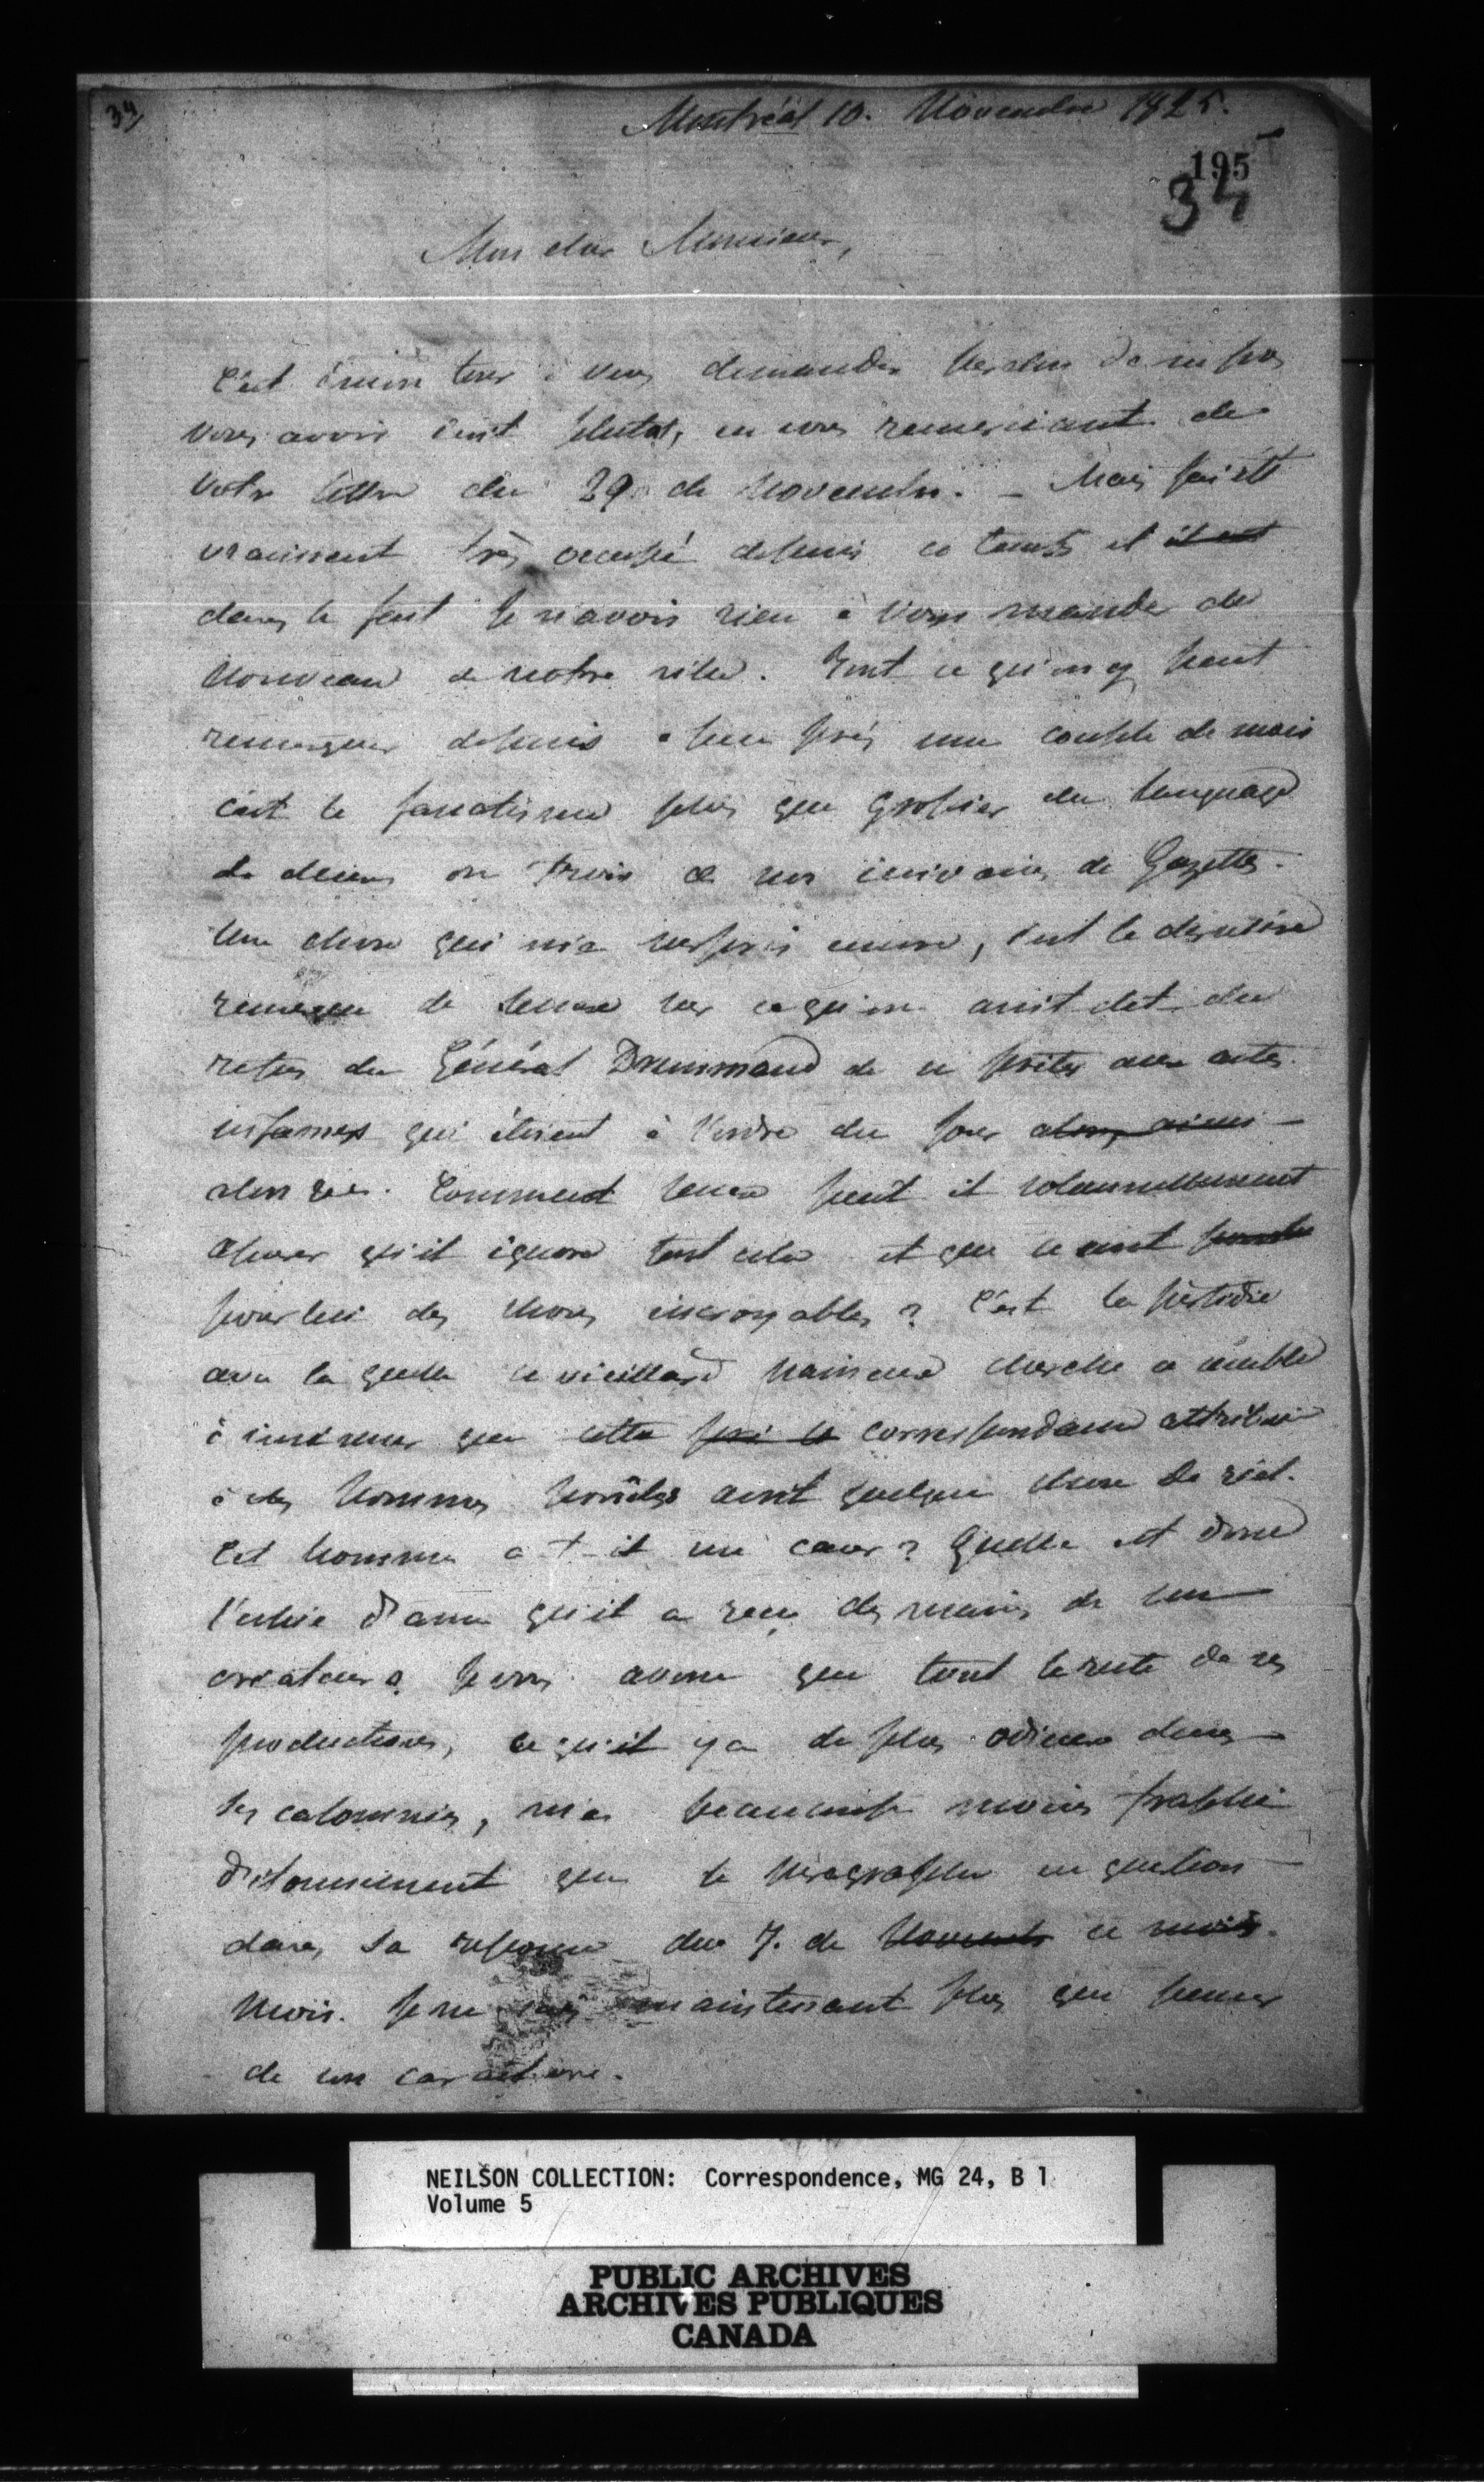 34
Montréal 10. Novembre 1825.
195
34
Mon cher Monsieur,
C'est à mon tour à vous demander pardon de ne pas
vous avoir écrit plutot, en vous remerciant de
votre lettre du 29 de Novembre. _ Mais j'ai été
vraiment très occupé depuis ce temps et il est
dans le fait je n'avois rien à vous mander de
nouveau de notre ville. Tout ce qu'on y peut
remarquer depuis à peu près une couple de mois
c'est le fanatisme plus que grossier du langage
de deux ou trois de nos écrivains de Gazettes.
Une chose qui m'a surpris encore, c'est la dernière
remarque de sur ce qu'on avoit dit du
refus du Général Drummond de se prêter aux actes
infames qui étoient à l'ordre du jour alors ainsi
alors ici. Comment peut il solennellement
assurer qu'il ignore tout cela et que ce sont
pour lui des choses incroyables? C'est la perfidie
avec la quelle ce vieillard haineux cherche ce semble
à insinuer que cette correspondance attribuée
à des hommes avoit quelque chose de réel.
Cet homme a-t-il un coeur? Quelle est donc
l'espèce d'ame qu'il a reçu des mains de son
créateur? Je vous avoue que tout le reste de ses
productions, ce qu'il y a de plus odieux dans
ses calomnies, m'a beaucoup moins frappé
d'étonnement que le paragraphe en question
dans sa réponse du 7. de Novembre ce mois.
mois. Je ne sais maintenant plus que penser
de son caractère.
NEILSON COLLECTION: Correspondence, MG 24, B 1
Volume 5
PUBLIC ARCHIVES
ARCHIVES PUBLIQUES
CANADA